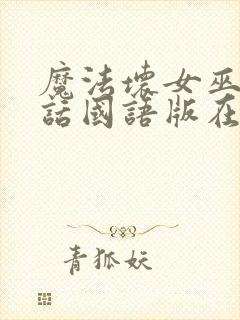 魔法壞女巫
話國語版在
青狐妖